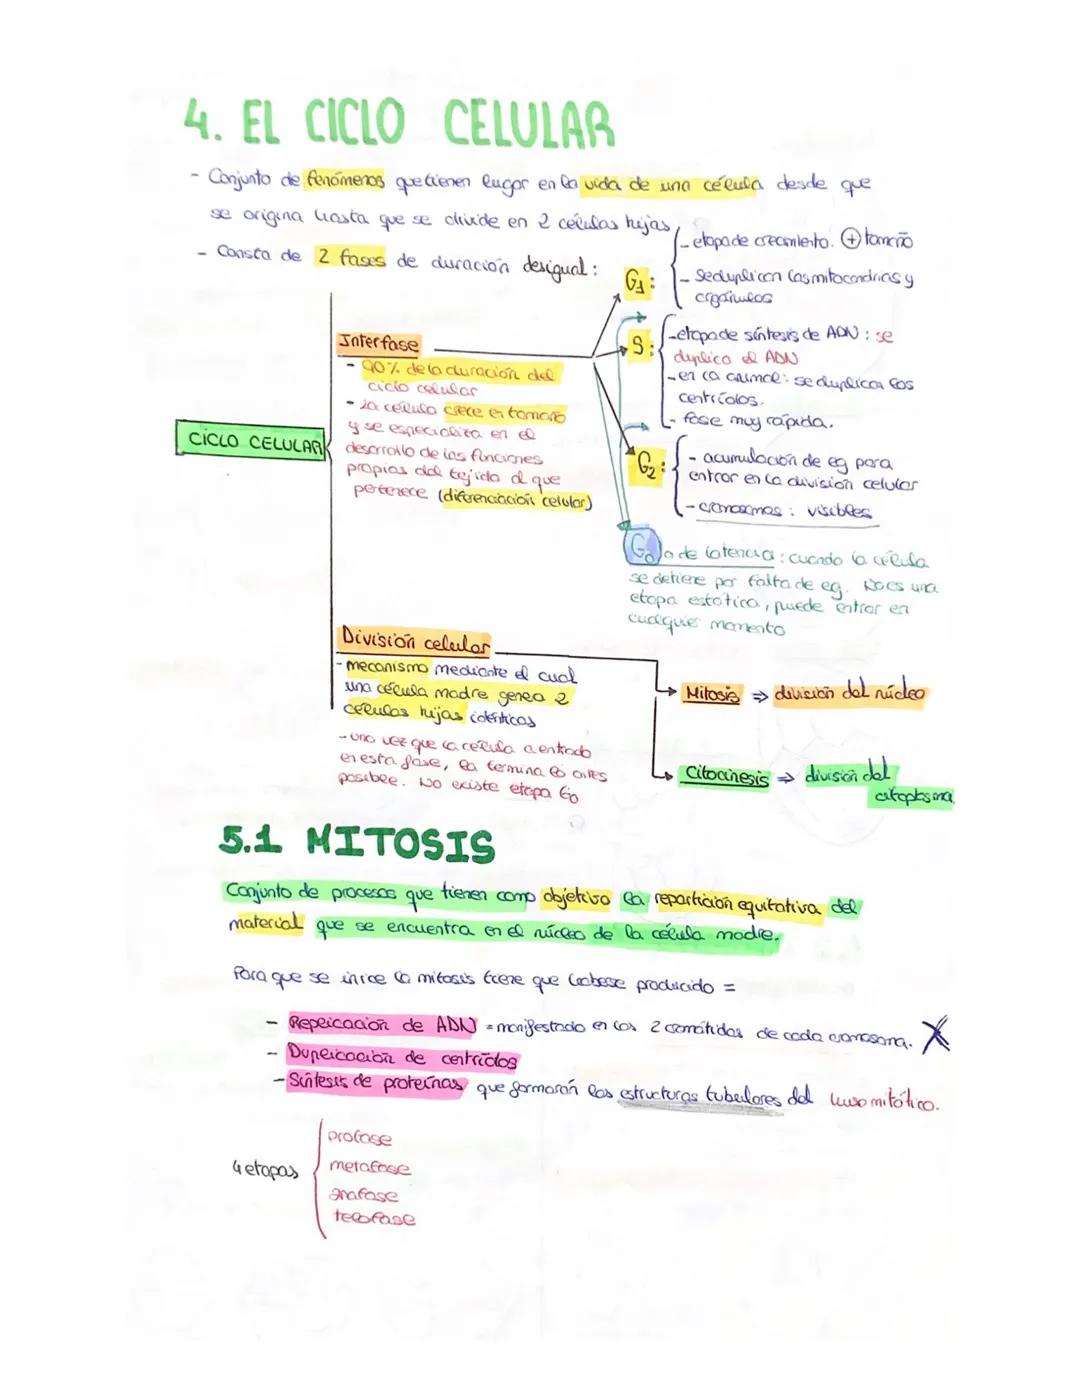 4. EL CICLO CELULAR
- Conjunto de fenómenos que tienen lugar en la vida de una célula desde que
se origina hasta que se divide en 2 células hijas
- Consta de 2 fases de duración desigual:
CICLO CELULAR
Interfase
- 90% de la duración del
ciclo celular
- La célula crece en tamaño
y se especializa en el
desarrollo de las funciones
propias del tejido al que
pertenece (diferenciación celular)
G1:
- etapa de crecimiento. + tamaño
- Se duplican las mitocondrias y
orgánulos
S:
- etapa de síntesis de ADN: se
duplica el ADN
- en ca animal: se duplica los
centríolos.
- fase muy rápida.
G2:
- acumulación de eg para
entrar en la división celular
- cromosomas: visibles
G0 o de latencia: cuando la célula
se detiene por falta de eg. No es una
etapa estática, puede entrar en
cualquier momento
División celular
- mecanismo mediante el cual
una célula madre genera 2
células hijas idénticas
- una vez que la célula a entrado
en esta fase, la termina lo antes
posible. No existe etapa G0
Mitosis ⇒ división del núcleo
Citocinesis ⇒ división del
citoplasma
5.1 MITOSIS
Conjunto de procesos que tienen como objetivo la repartición equitativa del
material que se encuentra en el núcleo de la célula madre.
Para que se inicie la mitosis tiene que haberse producido =
- Replicación de ADN = manifestado en las 2 cromátidas de cada cromosoma.
- Duplicación de centríolos
- Síntesis de proteínas que formarán las estructuras tubulares del huso mitótico.
4 etapas
profase
metafase
anafase
telofase